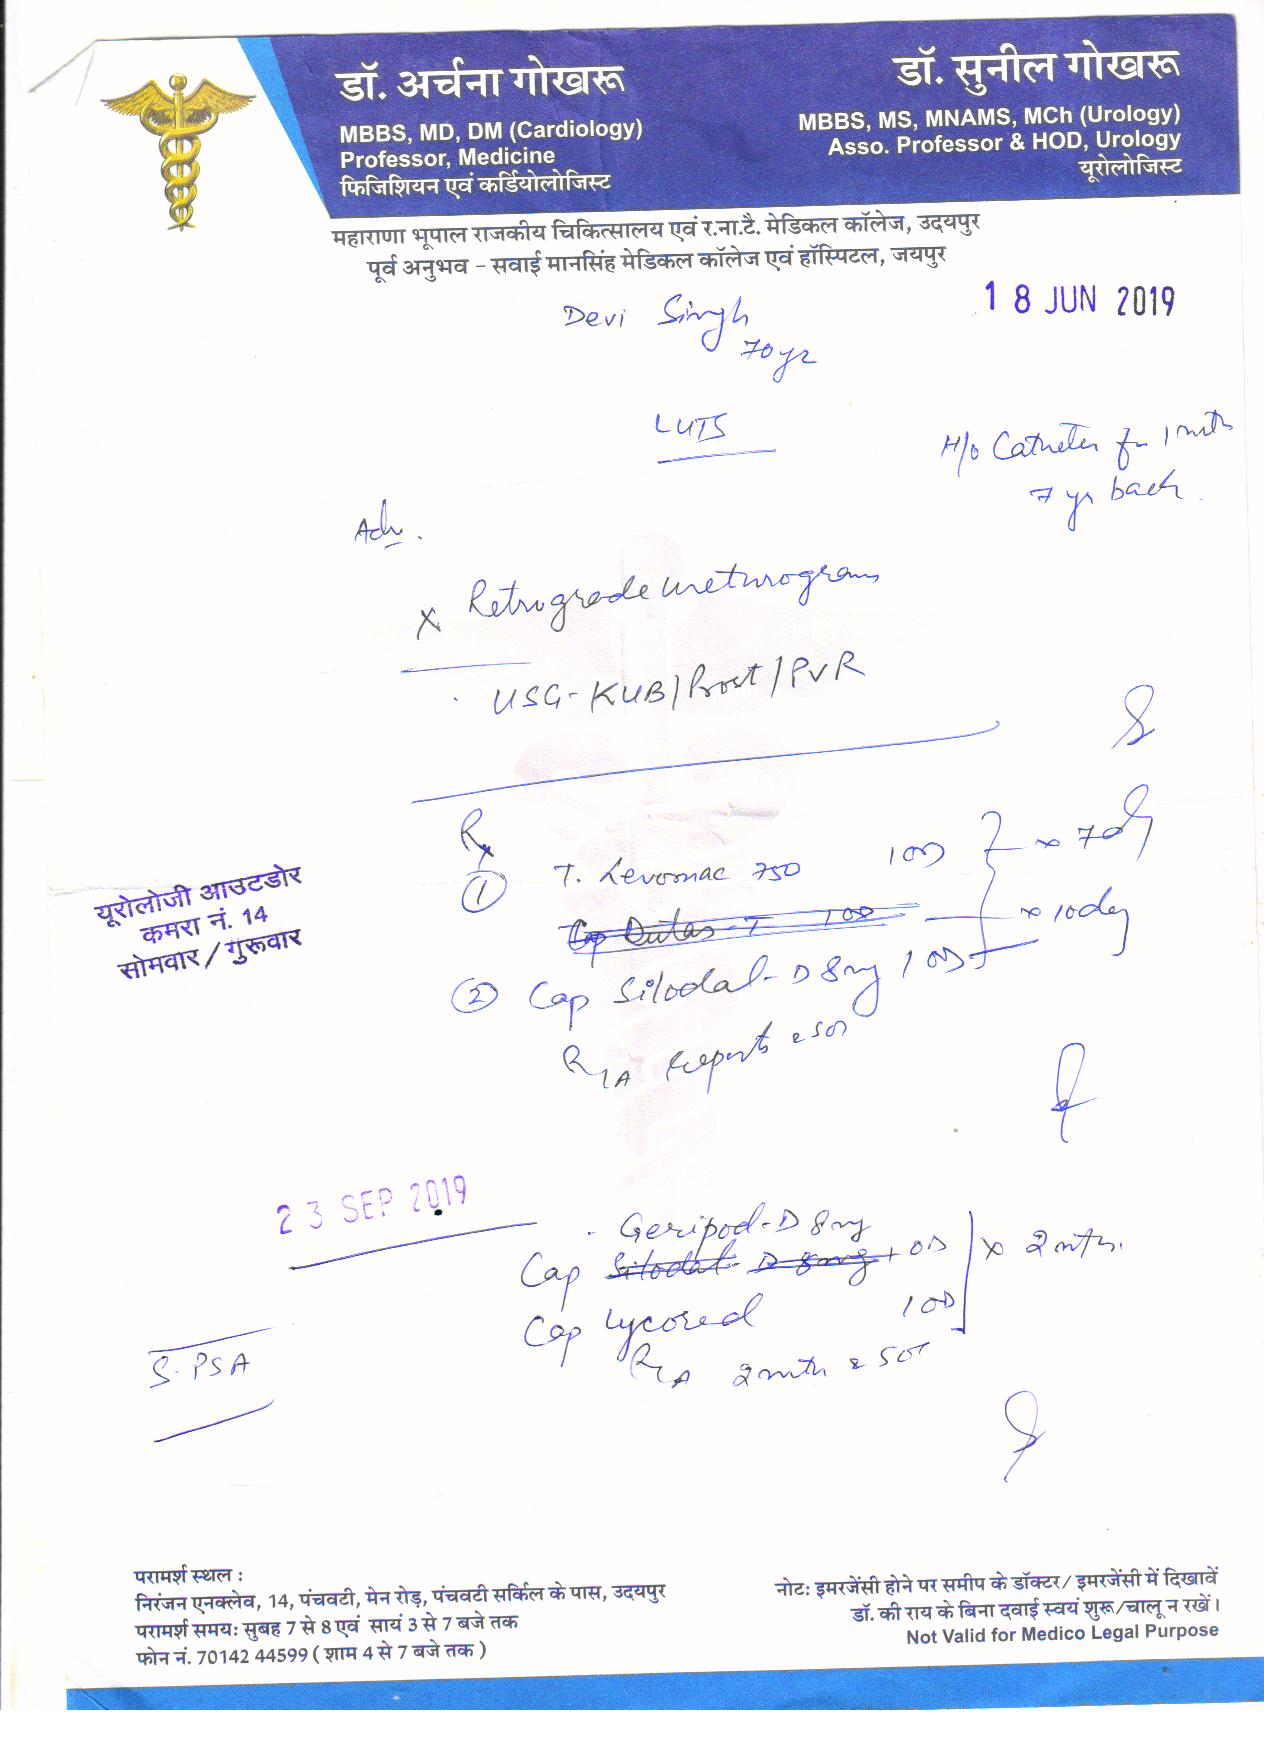 डॉ. अर्चना गोखरू
MBBS, MD, DM (Cardiology)
Professor, Medicine
फिजिशियन एवं कर्डियोलोजिस्ट
डॉ. सुनील गोखरू
MBBS, MS, MNAMS, MCh (Urology)
Asso. Professor & HOD, Urology
यूरोलोजिस्ट
महाराणा भूपाल राजकीय चिकित्सालय एवं र.ना.टै. मेडिकल कॉलेज, उदयपुर
पूर्व अनुभव - सवाई मानसिंह मेडिकल कॉलेज एवं हॉस्पिटल, जयपुर
18 JUN 2019
Devi Singh
70yr
LUTS
H/o Catheter for 1 mth
7 yr back
Adv.
x Retrograde urethrogram
USG-KUB/Prost/PVR
Rx
① T. Levomac 750 1OD x 7d
Cap Dutas-T 1OD x 10day
② Cap Silodal-D 8mg 1OD
R/A reports & SOS
यूरोलोजी आउटडोर
कमरा नं. 14
सोमवार / गुरूवार
23 SEP 2019
Geripod-D 8mg
Cap Silodal-D 8mg 1 OD x 2 mth.
Cap Lycored 1 OD
R/A 2 mth & SOS
S. PSA
परामर्श स्थल :
निरंजन एनक्लेव, 14, पंचवटी, मेन रोड़, पंचवटी सर्किल के पास, उदयपुर
परामर्श समयः सुबह 7 से 8 एवं सायं 3 से 7 बजे तक
फोन नं. 70142 44599 ( शाम 4 से 7 बजे तक )
नोटः इमरजेंसी होने पर समीप के डॉक्टर/ इमरजेंसी में दिखावें
डॉ. की राय के बिना दवाई स्वयं शुरू/चालू न रखें।
Not Valid for Medico Legal Purpose